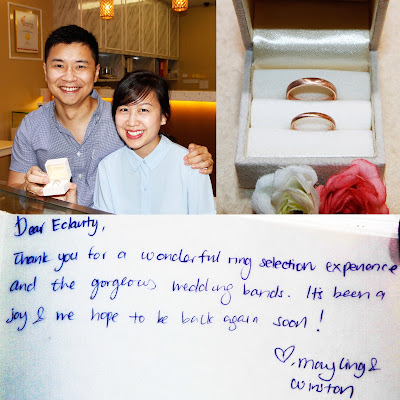 Dear Eclarity,
Thank you for a wonderful ring selection experience
and the gorgeous wedding bands. It's been a
joy & we hope to be back again soon!
♡, Mayling &
Winston